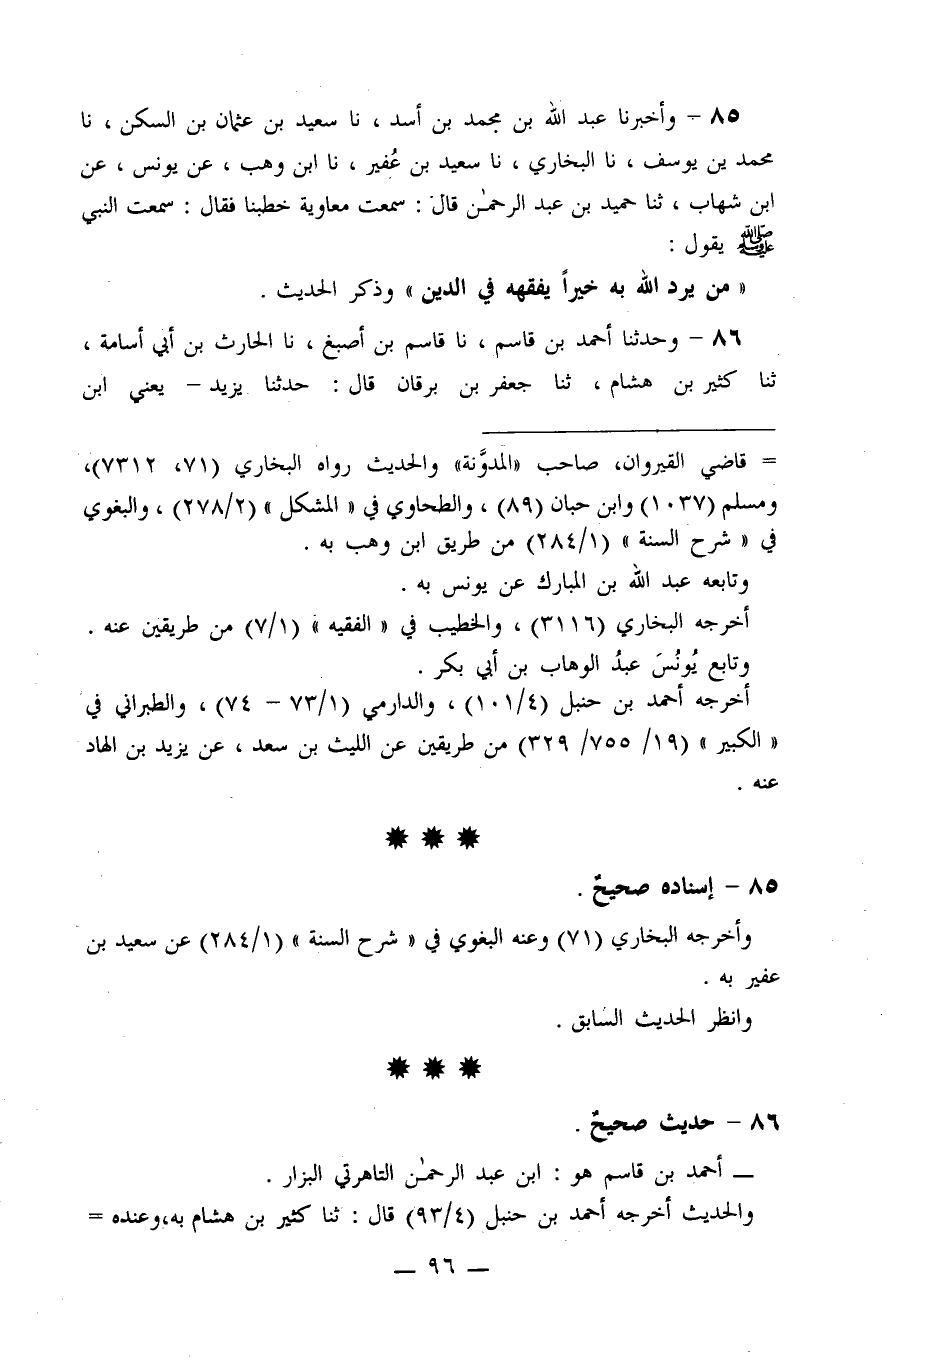 ٨٥ – وأخبرنا عبد الله بن محمد بن أسد ، نا سعيد بن عثمان بن السكن ، نا
محمد بن يوسف ، نا البخاري ، نا سعيد بن عُفير ، نا ابن وهب ، عن يونس ، عن
ابن شهاب ، ثنا حميد بن عبد الرحمٰن قال : سمعت معاوية خطبنا فقال : سمعت النبي
ﷺ يقول :
« من يرد الله به خيراً يفقهه في الدين » وذكر الحديث .
٨٦ – وحدثنا أحمد بن قاسم ، نا قاسم بن أصبغ ، نا الحارث بن أبي أسامة ،
ثنا كثير بن هشام ، ثنا جعفر بن برقان قال : حدثنا يزيد – يعني ابن
= قاضي القيروان، صاحب «المدوَّنة» والحديث رواه البخاري (٧١، ٧٣١٢)،
ومسلم (١٠٣٧) وابن حبان (٨٩) ، والطحاوي في « المشكل » (٢٧٨/٢) ، والبغوي
في « شرح السنة » (٢٨٤/١) من طريق ابن وهب به .
وتابعه عبد الله بن المبارك عن يونس به .
أخرجه البخاري (٣١١٦) ، والخطيب في « الفقيه » (٧/١) من طريقين عنه .
وتابع يُونُسَ عبدُ الوهاب بن أبي بكر .
أخرجه أحمد بن حنبل (١٠١/٤) ، والدارمي (٧٣/١ – ٧٤) ، والطبراني في
« الكبير » (١٩/ ٧٥٥/ ٣٢٩) من طريقين عن الليث بن سعد ، عن يزيد بن الهاد
عنه .
٨٥ – إسناده صحيحٌ .
وأخرجه البخاري (٧١) وعنه البغوي في « شرح السنة » (٢٨٤/١) عن سعيد بن
عفير به .
وانظر الحديث السابق .
٨٦ – حديث صحيحٌ .
— أحمد بن قاسم هو : ابن عبد الرحمٰن التاهرتي البزار .
والحديث أخرجه أحمد بن حنبل (٩٣/٤) قال : ثنا كثير بن هشام به،وعنده =
— ٩٦ —